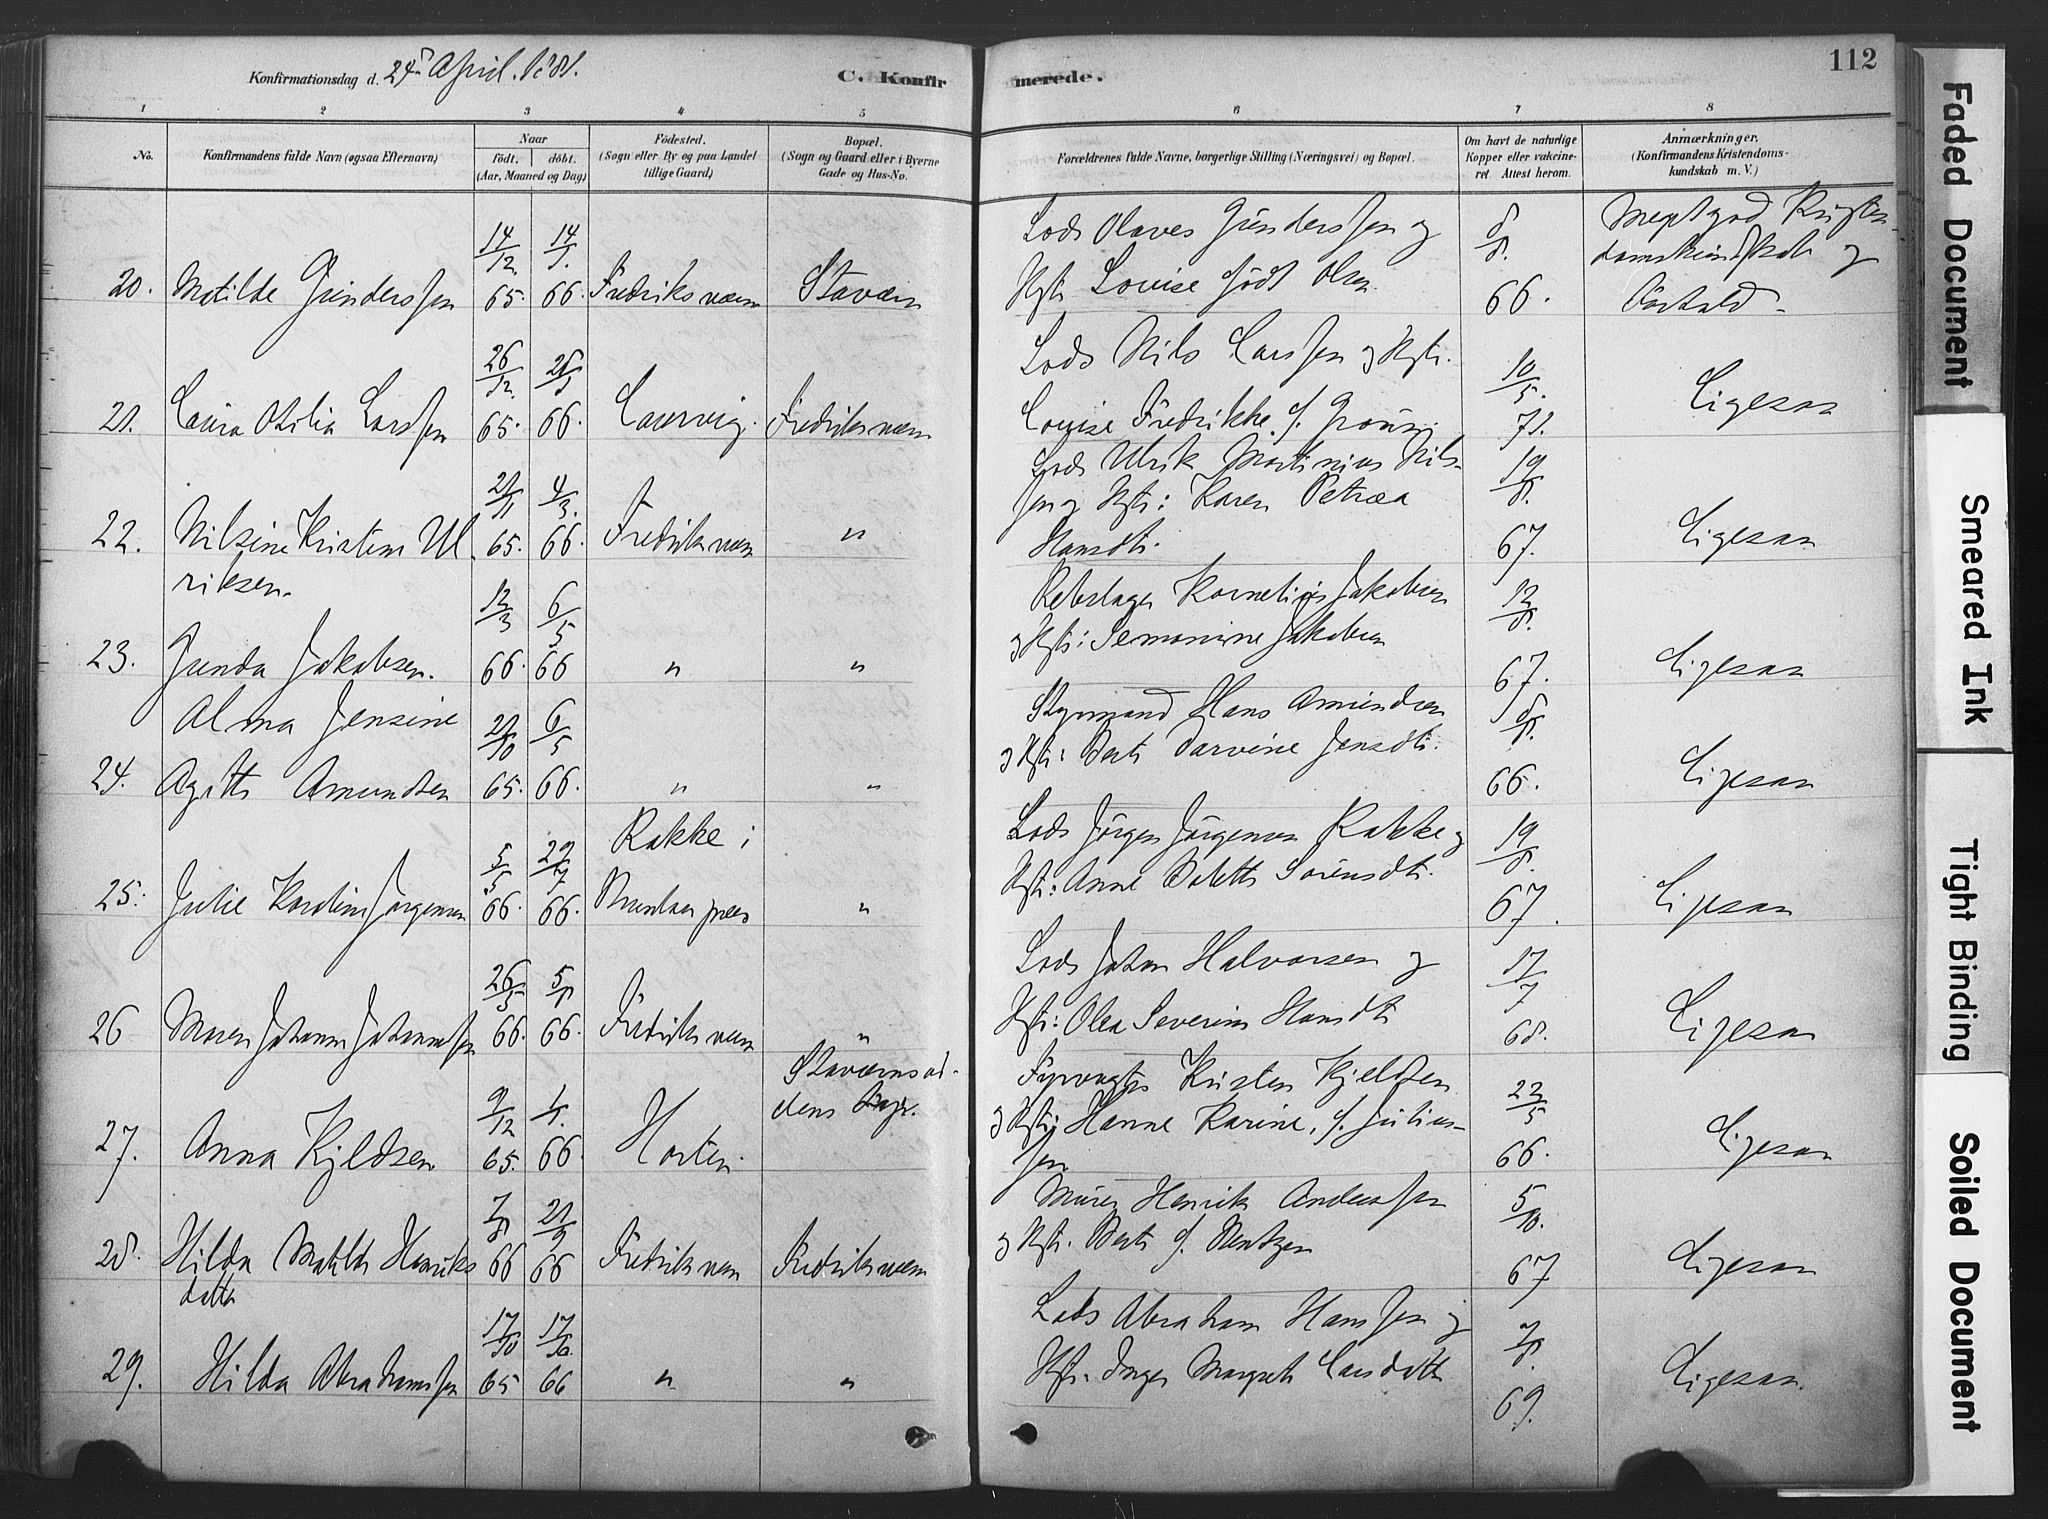 Konfirmationsdag d. 24de April 1881.
C. Konfirmerede.
112
1 2 3 4 5 6 7 8
No.
Konfirmandens fulde Navn (ogsaa Efternavn)
Naar
födt. döbt.
(Aar, Maaned og Dag)
Födested.
(Sogn eller By og paa Landet
tillige Gaard)
Bopæl.
(Sogn og Gaard eller i Byerne
Gade og Hus-No.
Forældrenes fulde Navne, borgerlige Stilling (Næringsvei) og Bopæl.
Om havt de naturlige
Kopper eller vakcine-
ret Attest herom.
Anmærkninger.
(Konfirmandens Kristendoms-
kundskab m. V.)
20. Matilde Gunderssen 14/12 65. 14/1 66. Fredriksværn Staværn
Lods Olaves Gunderssen og
Hst. Louise födt Olsen
8/8. 66.
Meget god Kristen-
domskundskab og
Forhold.
21. Laura Otilia Larssen 26/12. 65. 66. Laurvig. Fredriksværn
Lods Nils Larssen og Hst.
Louise Fredrikke f.
10/5. 71.
Ligesaa
22. Nilsine Kristine Ul-
riksen. 21/11 65. 4/3. 66. Fredriksværn "
Lods Ulrik Martinius Nils-
sen og Hst: Karen Petræa
Hansdt.
19/8. 67.
Ligesaa
23. Gunda Jakobsen. 12/3 66. 6/5 66 " "
Rebslager Kornelius Jakobsen
og Hst: Semonine Jakobsen
12/8. 67.
Ligesaa
Alma Jensine
24. Agitte Amundsen 21/10 65. 6/5 66. " "
Styrmand Hans Amundsen
og Hst: Berte Jensdt.
8/8. 66.
Ligesaa
25. Julie Karoline Jørgensen 5/5 66. 29/7 66. Rakke i
Brunlanæs "
Lods Jörgen Jörgensen Rakke og
Hst: Anne Bolette Sörensdt.
19/8. 67.
Ligesaa
26 Maren Johanne Johannessen 26/5 66. 5/8 66. Fredriksværn "
Lods Johan Halvorsen og
Hst: Olea Severine Hansdt
17/7 68.
Ligesaa
27. Anna Kjeldsen 9/12 65. 1/1. 66. Horten. Staværnsod-
dens Fyr.
Fyrvogter Kristen Kjeldsen
og Hst: Hanne Karine, f. Julius-
sen
22/5 66.
Ligesaa
28. Hilda Matilde Henriks
datter 7/8 66 21/9 66 Fredriksværn Fredriksværn
Murer Henrik Anderssen
og Hst. Berte f. Bentzen
5/10. 67
Ligesaa
29. Hilda Abrahamssen 17/10 65 17/10. 66 " "
Lods Abraham Hanssen og
Hst. Inger Margrete Larsdatter
7/8. 69.
Ligesaa.
Faded Document
Smeared Ink
Tight Binding
Soiled Document